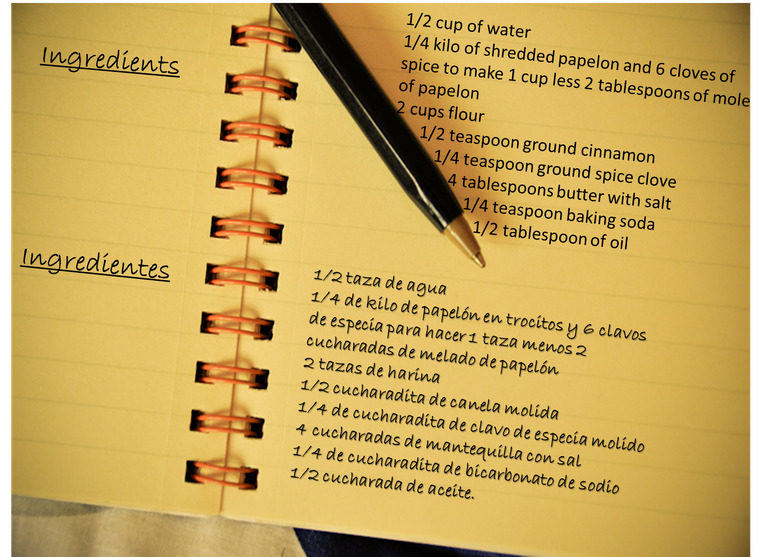 Ingredients
1/2 cup of water
1/4 kilo of shredded papelon and 6 cloves of
spice to make 1 cup less 2 tablespoons of mole
of papelon
2 cups flour
1/2 teaspoon ground cinnamon
1/4 teaspoon ground spice clove
4 tablespoons butter with salt
1/4 teaspoon baking soda
1/2 tablespoon of oil
Ingredientes
1/2 taza de agua
1/4 de kilo de papelón en trocitos y 6 clavos
de especia para hacer 1 taza menos 2
cucharadas de melado de papelón
2 tazas de harina
1/2 cucharadita de canela molida
1/4 de cucharadita de clavo de especia molido
4 cucharadas de mantequilla con sal
1/4 de cucharadita de bicarbonato de sodio
1/2 cucharada de aceite.